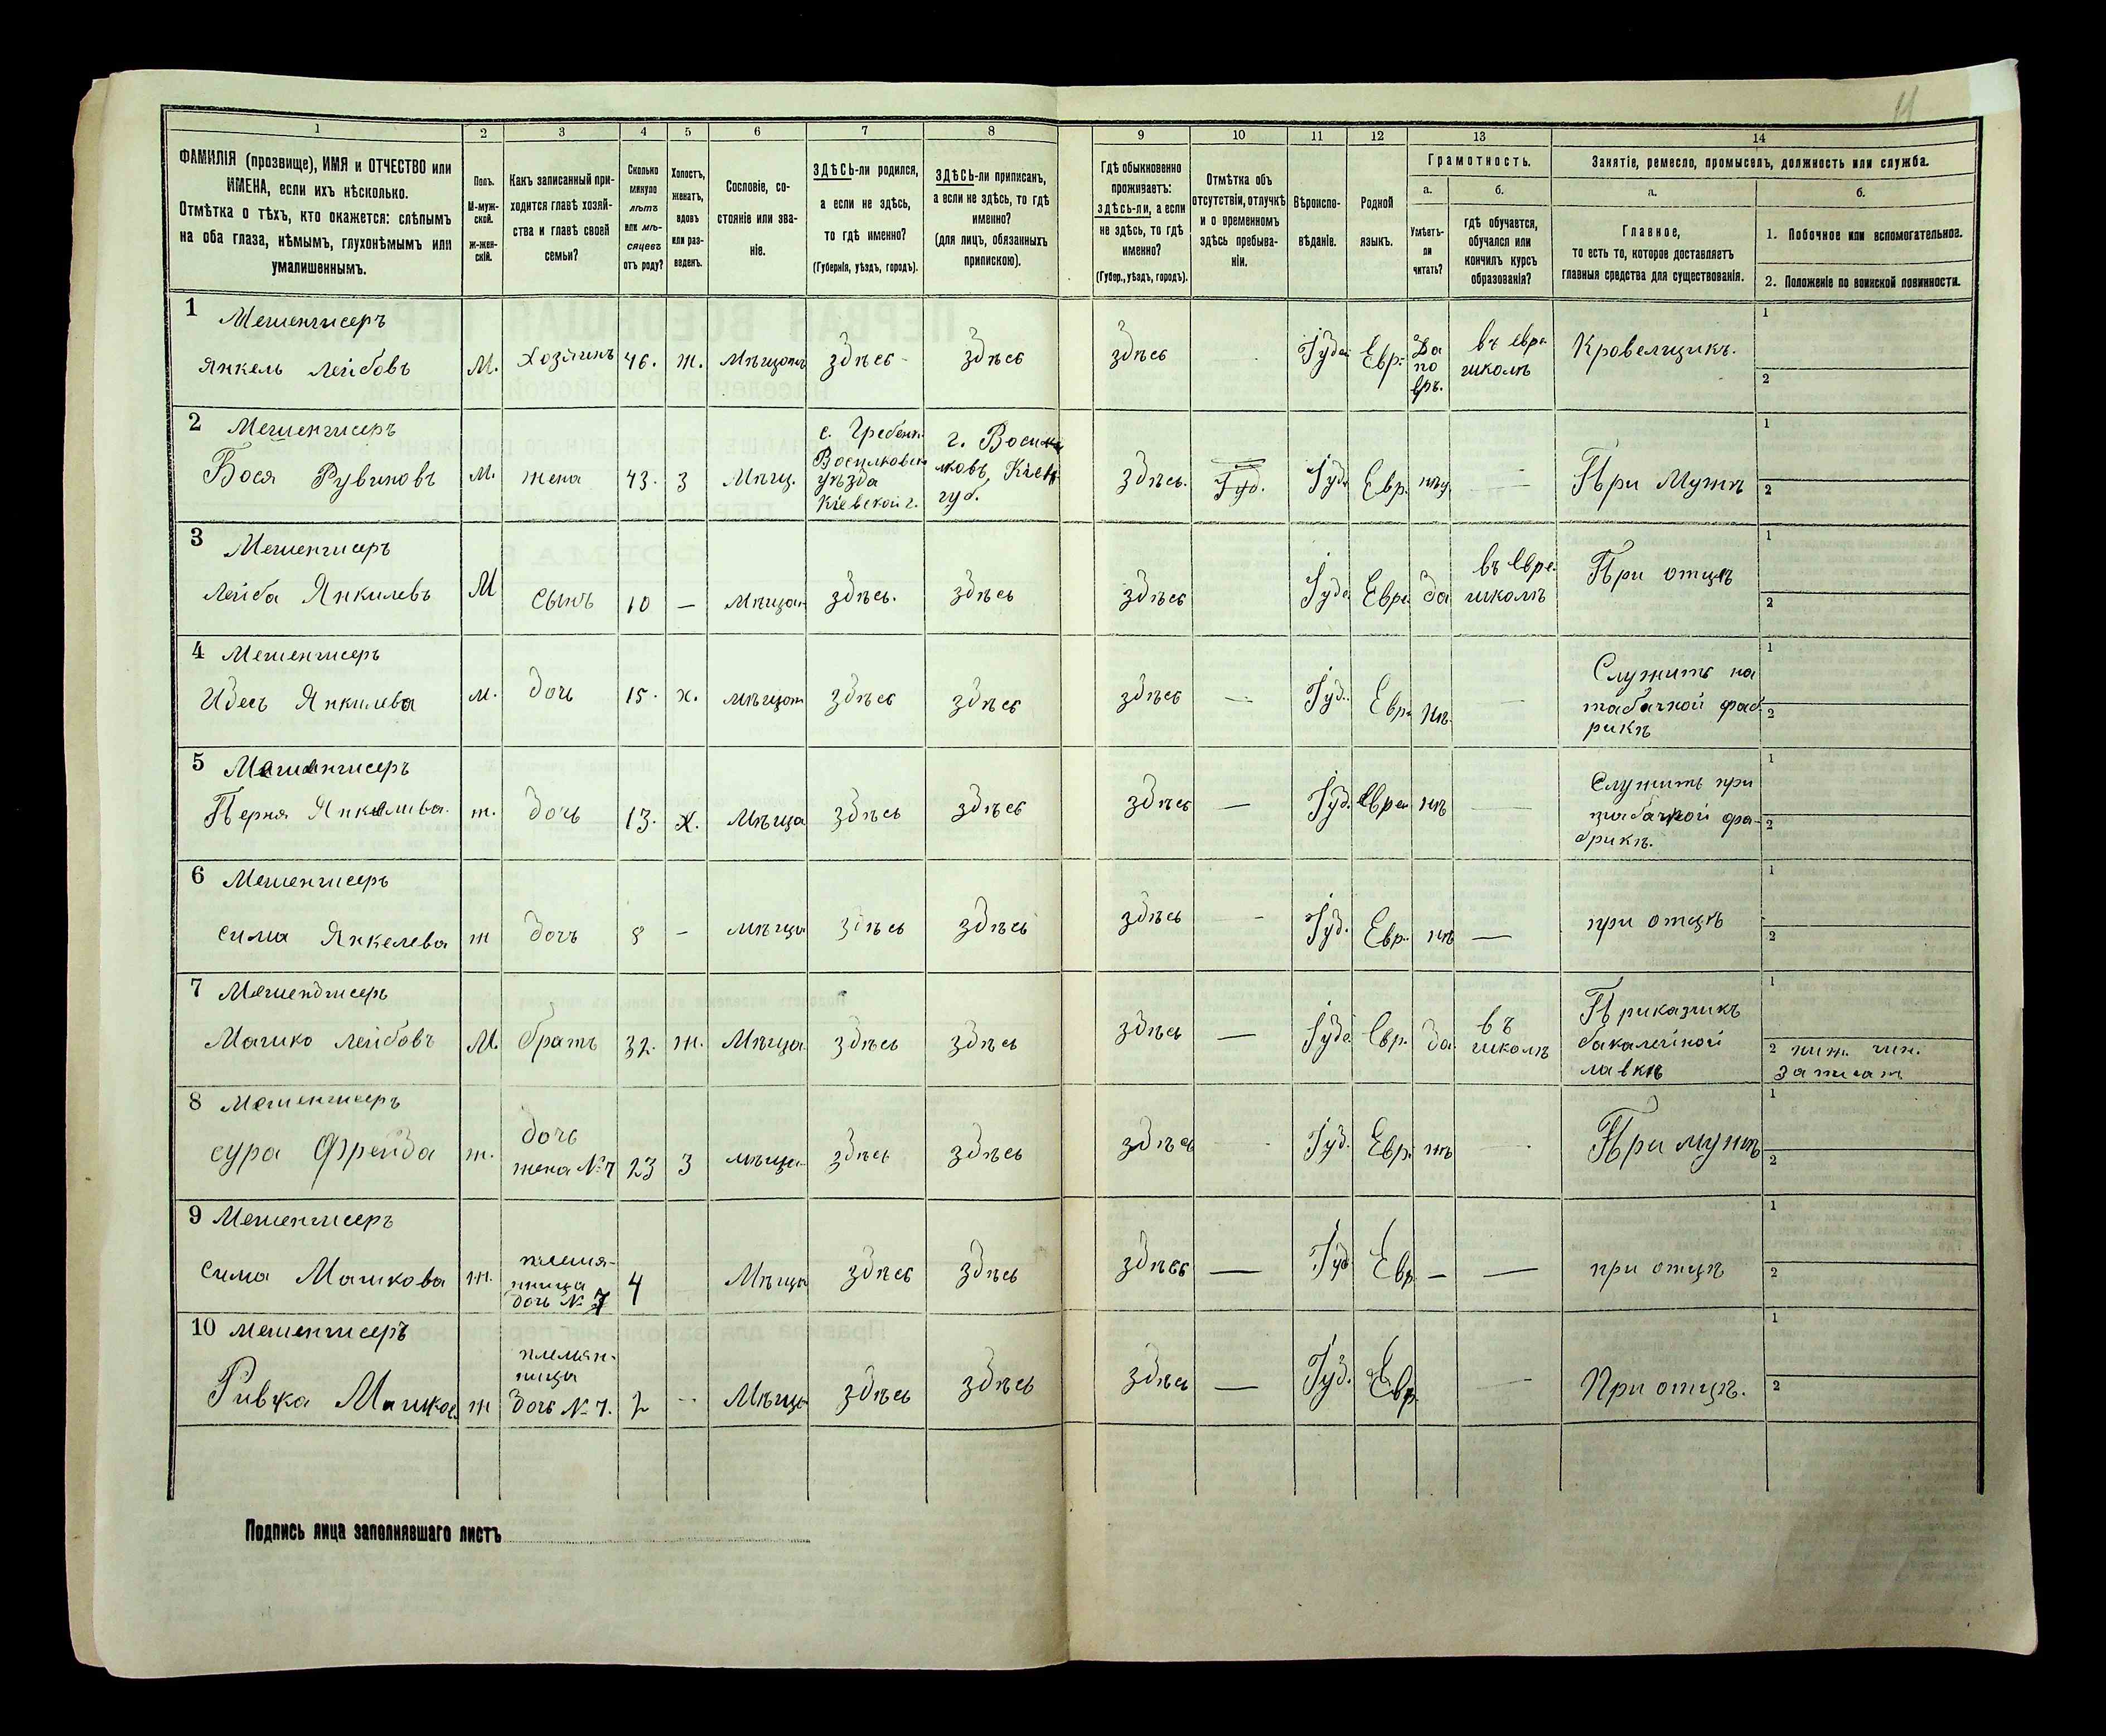 11
1 2 3 4 5 6 7 8 9 10 11 12 13 14
ФАМИЛІЯ (прозвище), ИМЯ и ОТЧЕСТВО или
ИМЕНА, если ихъ нѣсколько.
Отмѣтка о тѣхъ, кто окажется: слѣпымъ
на оба глаза, нѣмымъ, глухонѣмымъ или
умалишеннымъ.
Полъ.
М-муж-
ской.
ж-жен-
скій.
Какъ записанный при-
ходится главѣ хозяй-
ства и главѣ своей
семьи?
Сколько
минуло
лѣтъ
или мѣ-
сяцевъ
отъ роду?
Холостъ,
женатъ,
вдовъ
или раз-
веденъ.
Сословіе, со-
стояніе или зва-
ніе.
ЗДѢСЬ-ли родился,
а если не здѣсь,
то гдѣ именно?
(Губернія, уѣздъ, городъ).
ЗДѢСЬ-ли приписанъ,
а если не здѣсь, то гдѣ
именно?
(для лицъ, обязанныхъ
припискою).
Гдѣ обыкновенно
проживаетъ:
здѣсь-ли, а если
не здѣсь, то гдѣ
именно?
(Губер., уѣздъ, городъ).
Отмѣтка объ
отсутствіи, отлучкѣ
и о временномъ
здѣсь пребыва-
ніи.
Вѣроиспо-
вѣданіе.
Родной
языкъ.
Грамотность.
а.
Умѣетъ-
ли
читать?
б.
гдѣ обучается,
обучался или
кончилъ курсъ
образованія?
Занятіе, ремесло, промыселъ, должность или служба.
а.
Главное,
то есть то, которое доставляетъ
главныя средства для существованія.
б.
1. Побочное или вспомогательное.
2. Положеніе по воинской повинности.
1 Мешенгисеръ
Янкель Лейбовъ М. Хозяинъ 46. ж. Мѣщан здѣсь здѣсь здѣсь Іуде Евр. Да
по
евр. въ евр.
школѣ Кровельщикъ. 1
2
2 Мешенгисеръ
Бося Рувиновъ М. жена 43. З Мѣщ. с. Гребенк.
Восилковск
уѣзда
Кіевской г. г. Восил
лковъ, Кіевк
губ. здѣсь. Іуд. Іуд. Евр. нѣу — При Мужѣ 1
2
3 Мешенгисеръ
Лейба Янкилевъ М Сынъ 10 — Мѣщан здѣсь. здѣсь здѣсь Іуде Евре да въ Евре.
школѣ При отцѣ 1
2
4 Мешенгисеръ
Идесъ Янкилева м. дочь 15. х. мѣщан здѣсь здѣсь здѣсь — Іуд. Евр. нѣ. — Служитъ на
табачной фаб
рикѣ 1
2
5 Мешенгисеръ
Перня Янкилива. ж. дочь 13. х. Мѣща здѣсь здѣсь здѣсь — Іуд. Евреи нѣ — Служитъ при
табачной фа-
брикѣ. 1
2
6 Мешенгисеръ
сима Янкелева ж дочъ 8 - мѣща здѣсь здѣсь здѣсь — Іуд. Евр. нѣ — при отцѣ 1
2
7 Мешендгисеръ
Машко Лейбовъ М. братъ 32. ж. Мѣща здѣсь здѣсь здѣсь — Іуде. Евр. да въ
школѣ Приказчикъ
бакалейной
лавкѣ 1
2 ниж. чин.
8 Мешенгисеръ
сура Фрейда ж. дочь
жена № 7 23 З мѣща здѣсь здѣсь здѣсь — Іуд. Евр. нѣ — При мужѣ 1
2
9 Мешенгисеръ
Сима Машкова ж. племя-
нница
дочь № 7 4 Мѣща здѣсь здѣсь здѣсь — Іуд Евр — — при отцѣ 1
2
10 Мешенгисеръ
Ривка Машков. ж племян-
ница
дочь № 7. 2 - Мѣща здѣсь здѣсь здѣсь — Іуд. Евр. — При отцѣ. 1
2
Подпись лица заполнявшаго листъ